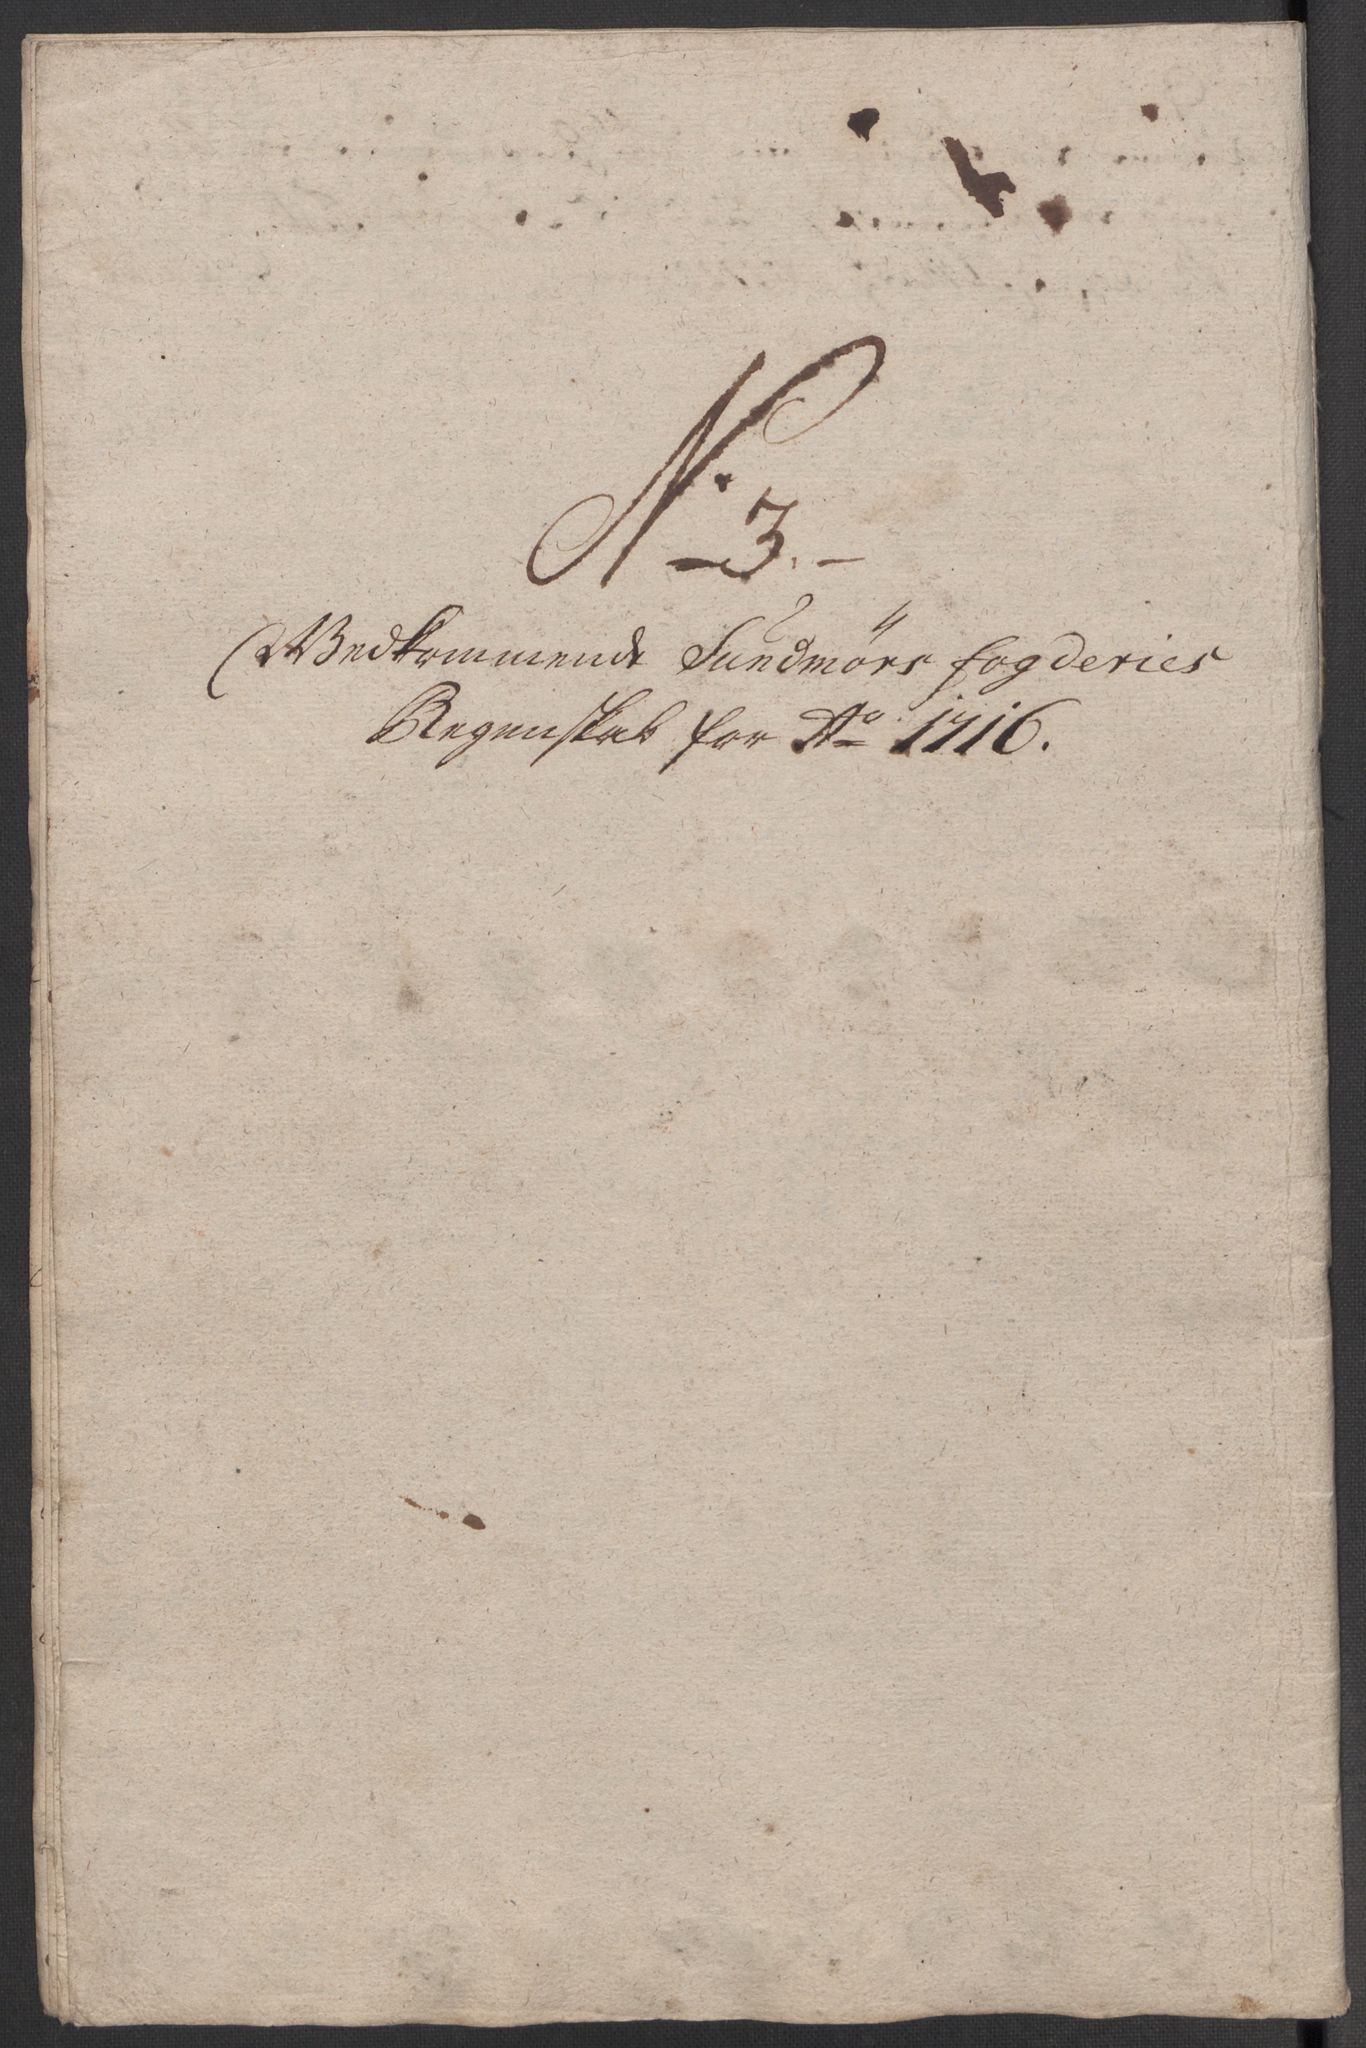 No 3.
Vedkommende Sundmörs fogderies
Regenskab for Ao 1716.